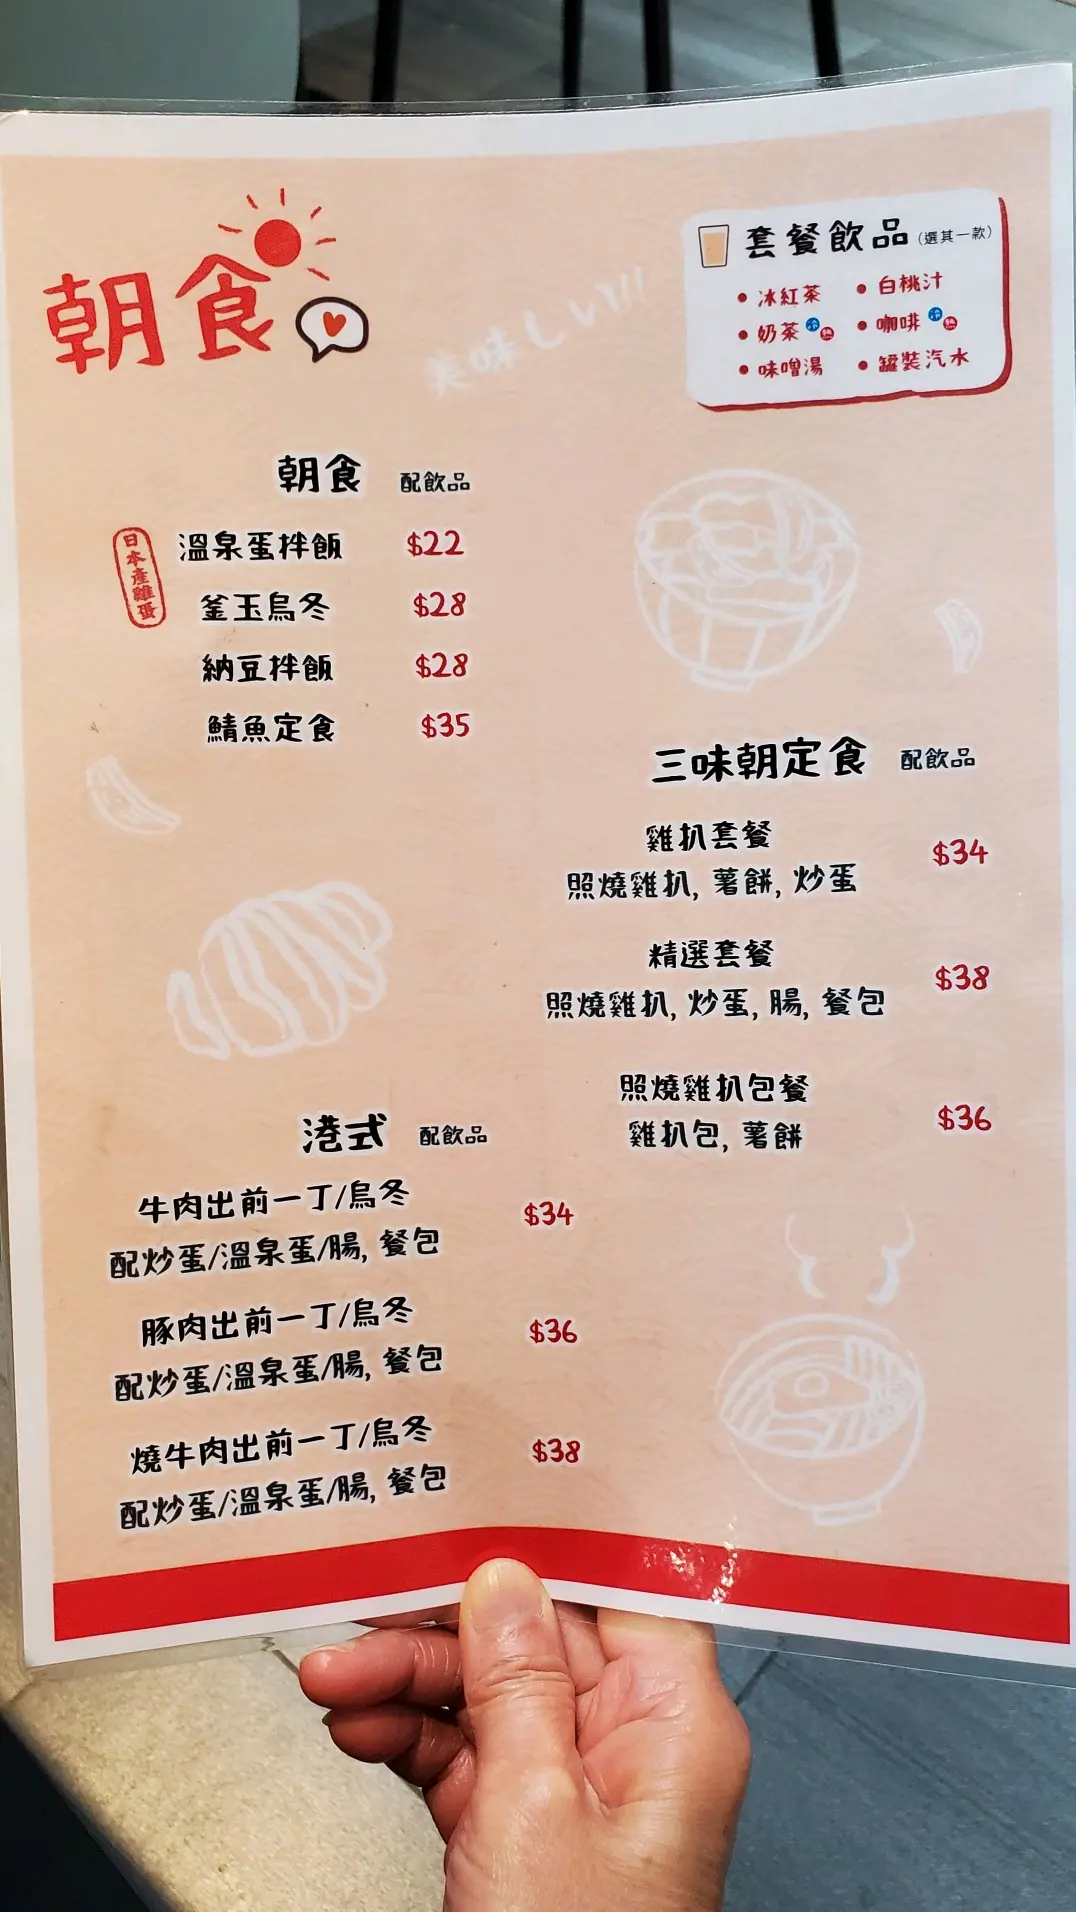 朝食
美味しい!!!
套餐飲品(選其一款)
• 冰紅茶 • 白桃汁
• 奶茶 冷 熱 • 咖啡 冷 熱
• 味噌湯 • 罐裝汽水
朝食 配飲品
日本產雞蛋
溫泉蛋拌飯 $22
釜玉烏冬 $28
納豆拌飯 $28
鯖魚定食 $35
三味朝定食 配飲品
雞扒套餐 $34
照燒雞扒, 薯餅, 炒蛋
精選套餐 $38
照燒雞扒, 炒蛋, 腸, 餐包
照燒雞扒包餐 $36
雞扒包, 薯餅
港式 配飲品
牛肉出前一丁/烏冬 $34
配炒蛋/溫泉蛋/腸, 餐包
豚肉出前一丁/烏冬 $36
配炒蛋/溫泉蛋/腸, 餐包
燒牛肉出前一丁/烏冬 $38
配炒蛋/溫泉蛋/腸, 餐包